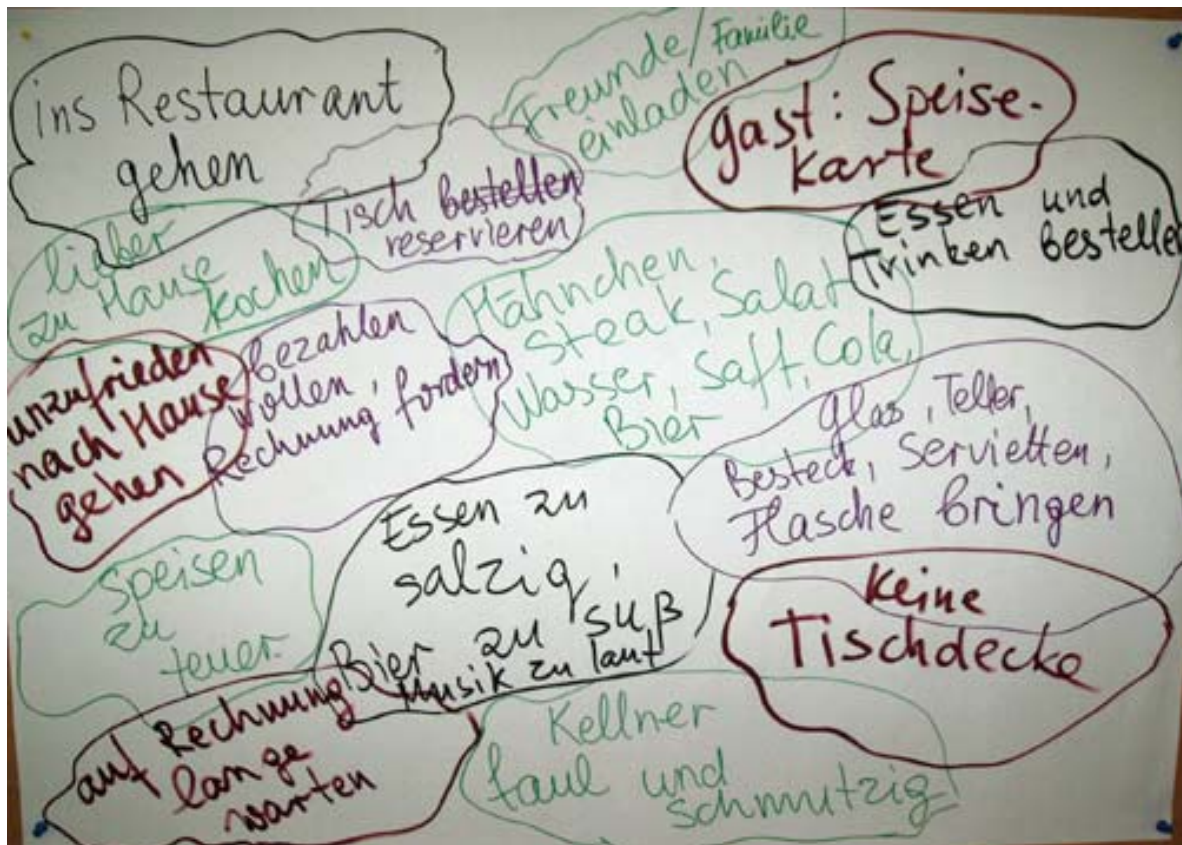 ins Restaurant
gehen
Freunde/Familie
einladen
gast: Speise-
karte
Tisch bestellen
reservieren
Essen und
Trinken bestellen
lieber
zu Hause
kochen
Hähnchen,
Steak, Salat
Wasser, Saft, Cola,
Bier
unzufrieden
nach Hause
gehen
bezahlen
wollen,
Rechnung fordern
Glas, Teller,
Besteck, Servietten,
Flasche bringen
Essen zu
salzig,
Bier zu süß
Musik zu laut
Speisen
zu
teuer
keine
Tischdecke
auf Rechnung
lange
warten
Kellner
faul und
schmutzig